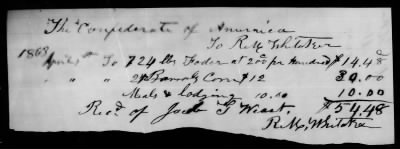 The Confederate of America
To R M Whitaker
1863
April To 724 lbs Fodder at 200 per Hundred $14.48
" " 2½ Barrels Corn $12 30.00
Meals & lodging 10.00 10.00
Rec'd of Jacob G West, $54.48
R M Whitaker